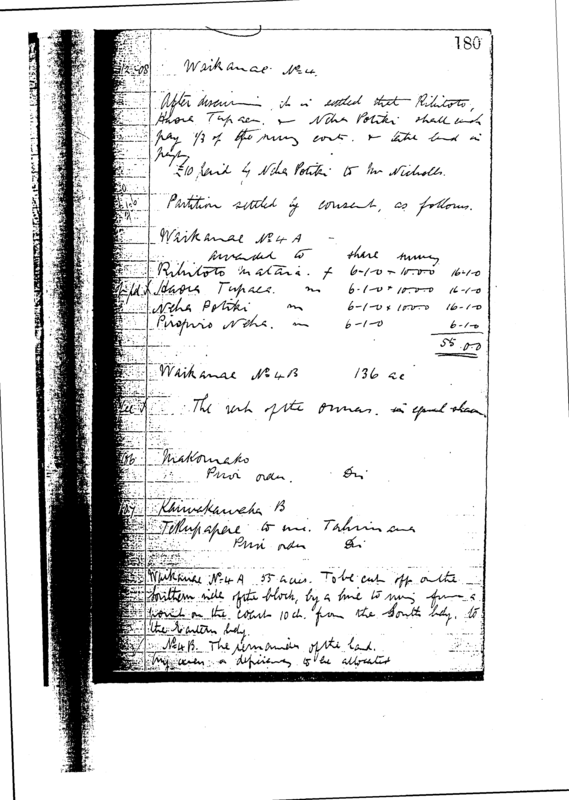 180
Waikanae No 4.
After discussion it is settled that Rihitoto,
Haora Tupaea & Neha Potiki shall each
pay 1/3 of the survey costs & take land in
£10 paid by Neha Potiki to Mr Nicholls.
Partition settled by consent, as follows.
Waikanae No 4 A
awarded to share survey
Rihitoto Mataia. f 6-1-0 + 10.0.0 16-1-0
Haora Tupaea. m 6-1-0 + 10.0.0 16-1-0
Neha Potiki m 6-1-0 + 10.0.0 16-1-0
Piripiro Neha. m 6-1-0 6-1-0
55.0.0
Waikanae No 4 B 136 ac
The rest of the owners. in equal shares
Makomako
Prior order. Dis
Kawakawaha B
to
Prior order Dis
Waikanae No 4 A 55 acres. To be cut off on the
Southern side of the block, by a line to run from a
point on the coast 10 ch. from the South bdy. to
the Eastern bdy.
No 4 B. The remainder of the land.
Any excess or deficiency to be allocated